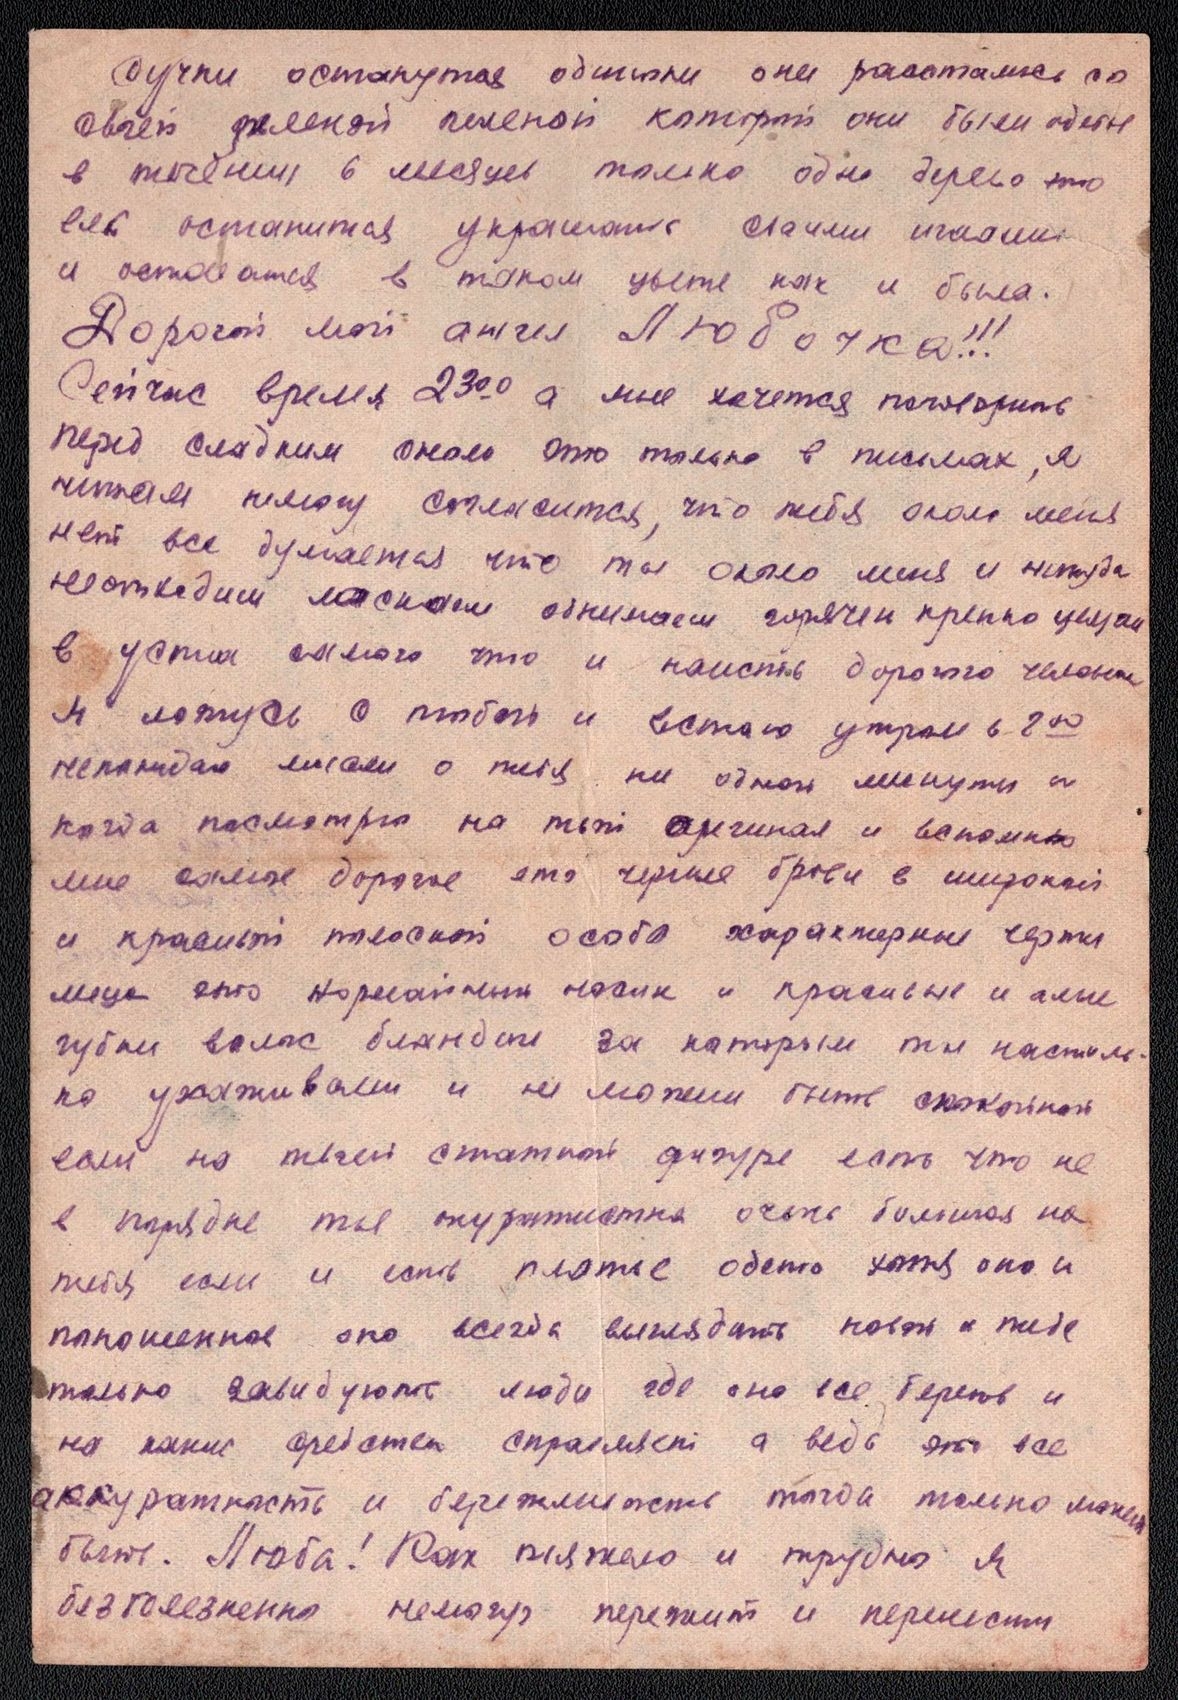 Сучки останутся они расстались со
своей зеленой пеленой которой они были
в течении 6 месяцев только одно дерево это
ель останится украшать своими иглами
и остоватся в таком цвете как и была.
Дорогой мой ангел Любочка!!!
Сейчас время 23 00 а мне хочется поговорить
перед сладким это только в письмах, я
немогу согласится, что тебя около меня
нет все думается что ты около меня и никуда
неоткодиш ласкаеш обнимаеш горячен крепко
в уста самого что и наисть дорогого
Я ложусь с тобой и встаю утром в 8 00
непокидаю мысли о тебя ни одной минуты и
когда посмотрю на твой оригинал и вспомню
мне самое дорогое это черные брови в широкой
и красивой полоской особо характерные черты
лица это нормальный носик и красивые и алые
губки волос блондин за которым ты настоль-
ко ухаживаеш и не можеш быть спокойной
если на твоей статной фигуре есть что не
в порядке ты акуратистка очень большая на
тебя если и есть платье одето хотя оно и
поношенное оно всегда выглядить новое и тебе
только завидують люди где она все береть и
на какие средства справляет а ведь это все
аккуратность и бережливость тогда только может
быть. Люба! Как тяжело и трудно Я
безболезненно немогу пережит и перенести